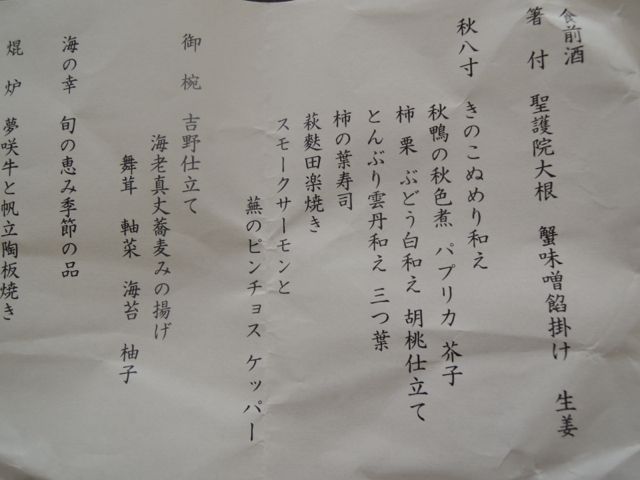 食前酒
箸付 聖護院大根 蟹味噌餡掛け 生姜
秋八寸 きのこぬめり和え
秋鴨の秋色煮 パプリカ 芥子
柿 栗 ぶどう白和え 胡桃仕立て
とんぶり雲丹和え 三つ葉
柿の葉寿司
萩麩田楽焼き
スモークサーモンと
蕪のピンチョス ケッパー
御椀 吉野仕立て
海老真丈蕎麦みの揚げ
舞茸 軸菜 海苔 柚子
海の幸 旬の恵み季節の品
焜炉 夢咲牛と帆立陶板焼き